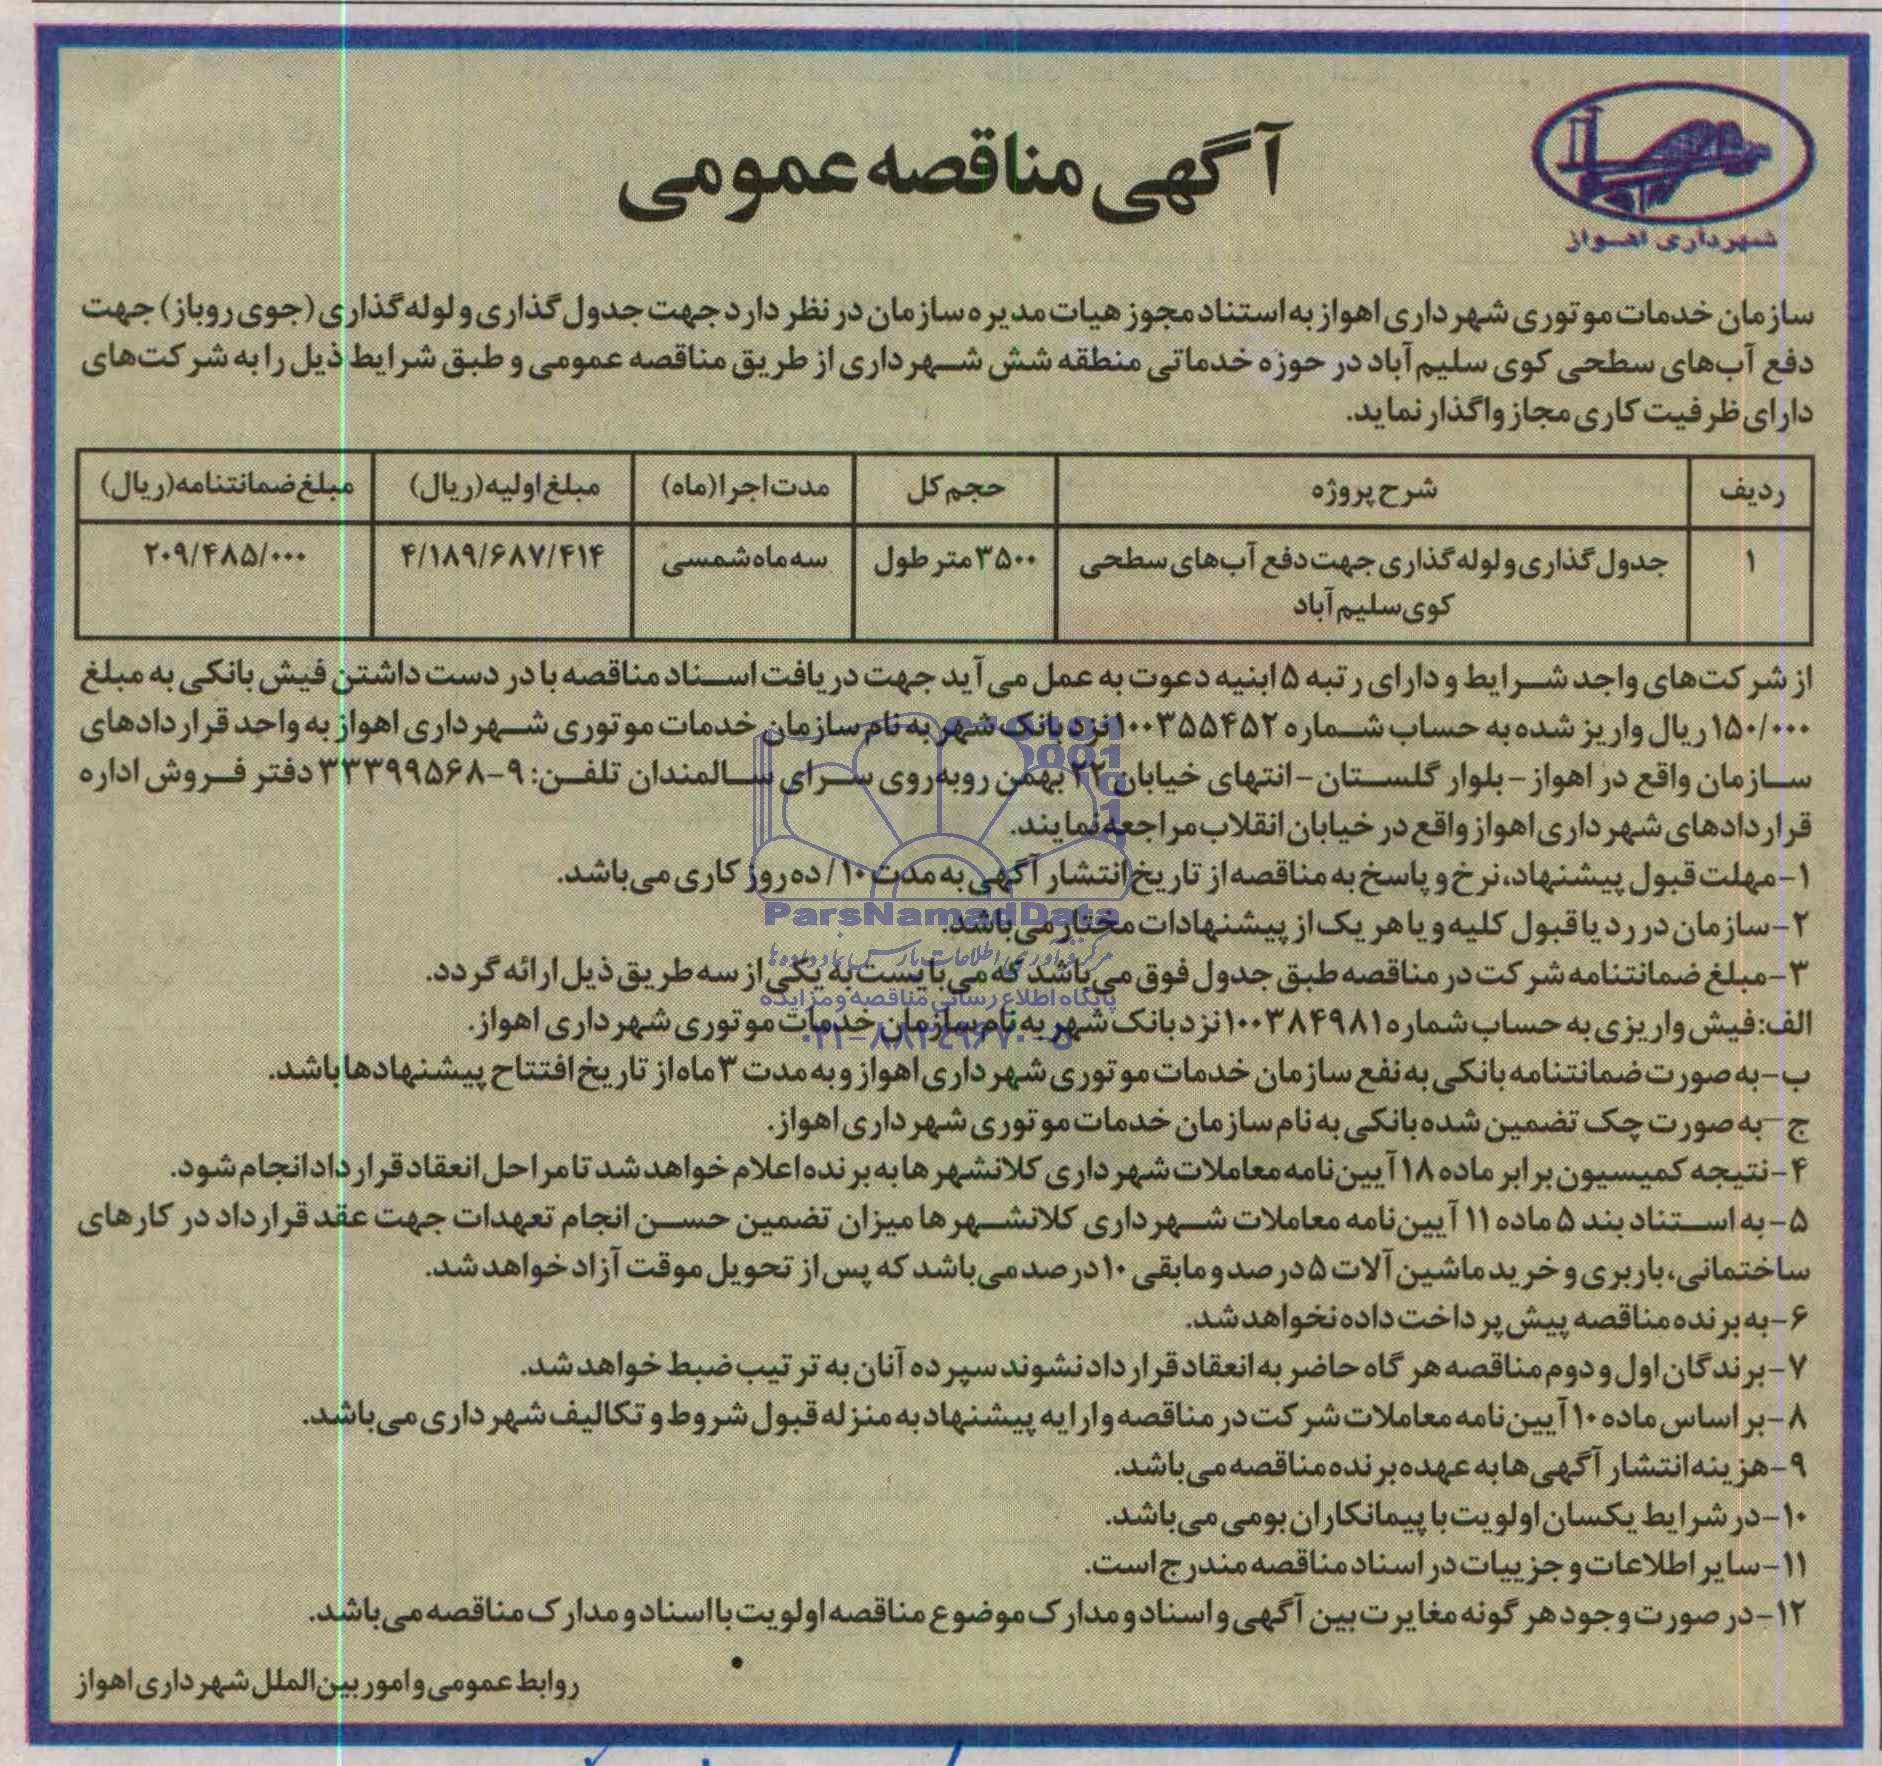 شهرداری اهواز
آگهی مناقصه عمومی
سازمان خدمات موتوری شهرداری اهواز به استناد مجوز هیات مدیره سازمان در نظر دارد جهت جدول گذاری و لوله گذاری (جوی روباز) جهت
دفع آب‌های سطحی کوی سلیم آباد در حوزه خدماتی منطقه شش شهرداری از طریق مناقصه عمومی و طبق شرایط ذیل را به شرکت‌های
دارای ظرفیت کاری مجاز واگذار نماید.
ردیف شرح پروژه حجم کل مدت اجرا (ماه) مبلغ اولیه (ریال) مبلغ ضمانتنامه (ریال)
۱ جدول گذاری و لوله گذاری جهت دفع آب‌های سطحی ۳۵۰۰ متر طول سه ماه شمسی ۴/۱۸۹/۶۸۷/۴۱۴ ۲۰۹/۴۸۵/۰۰۰
کوی سلیم آباد
از شرکت‌های واجد شرایط و دارای رتبه ۵ ابنیه دعوت به عمل می آید جهت دریافت اسناد مناقصه با در دست داشتن فیش بانکی به مبلغ
۱۵۰/۰۰۰ ریال واریز شده به حساب شماره ۱۰۰۳۵۵۴۵۲ نزد بانک شهر به نام سازمان خدمات موتوری شهرداری اهواز به واحد قراردادهای
سازمان واقع در اهواز - بلوار گلستان - انتهای خیابان ۲۲ بهمن روبه‌روی سرای سالمندان تلفن: ۹-۳۳۳۹۹۵۶۸ دفتر فروش اداره
قراردادهای شهرداری اهواز واقع در خیابان انقلاب مراجعه نمایند.
۱- مهلت قبول پیشنهاد، نرخ و پاسخ به مناقصه از تاریخ انتشار آگهی به مدت ۱۰ / ده روز کاری می‌باشد.
ParsNamadData
۲- سازمان در رد یا قبول کلیه و یا هر یک از پیشنهادات مختار می‌باشد.
مرکز فرآوری اطلاعات پارس نماد داده‌ها
۳- مبلغ ضمانتنامه شرکت در مناقصه طبق جدول فوق می‌باشد که می‌بایست به یکی از سه طریق ذیل ارائه گردد.
پایگاه اطلاع رسانی مناقصه و مزایده
الف: فیش واریزی به حساب شماره ۱۰۰۳۸۴۹۸۱ نزد بانک شهر به نام سازمان خدمات موتوری شهرداری اهواز.
۰۲۱-۸۸۳۴۹۶۷۰-۵
ب- به صورت ضمانتنامه بانکی به نفع سازمان خدمات موتوری شهرداری اهواز و به مدت ۳ ماه از تاریخ افتتاح پیشنهادها باشد.
ج- به صورت چک تضمین شده بانکی به نام سازمان خدمات موتوری شهرداری اهواز.
۴- نتیجه کمیسیون برابر ماده ۱۸ آیین‌نامه معاملات شهرداری کلانشهرها به برنده اعلام خواهد شد تا مراحل انعقاد قرارداد انجام شود.
۵- به استناد بند ۵ ماده ۱۱ آیین‌نامه معاملات شهرداری کلانشهرها میزان تضمین حسن انجام تعهدات جهت عقد قرارداد در کارهای
ساختمانی، باربری و خرید ماشین آلات ۵ درصد و مابقی ۱۰ درصد می‌باشد که پس از تحویل موقت آزاد خواهد شد.
۶- به برنده مناقصه پیش پرداخت داده نخواهد شد.
۷- برندگان اول و دوم مناقصه هرگاه حاضر به انعقاد قرارداد نشوند سپرده آنان به ترتیب ضبط خواهد شد.
۸- براساس ماده ۱۰ آیین‌نامه معاملات شرکت در مناقصه و ارایه پیشنهاد به منزله قبول شروط و تکالیف شهرداری می‌باشد.
۹- هزینه انتشار آگهی‌ها به عهده برنده مناقصه می‌باشد.
۱۰- در شرایط یکسان اولویت با پیمانکاران بومی می‌باشد.
۱۱- سایر اطلاعات و جزییات در اسناد مناقصه مندرج است.
۱۲- در صورت وجود هرگونه مغایرت بین آگهی و اسناد و مدارک موضوع مناقصه اولویت با اسناد و مدارک مناقصه می‌باشد.
روابط عمومی و امور بین‌الملل شهرداری اهواز